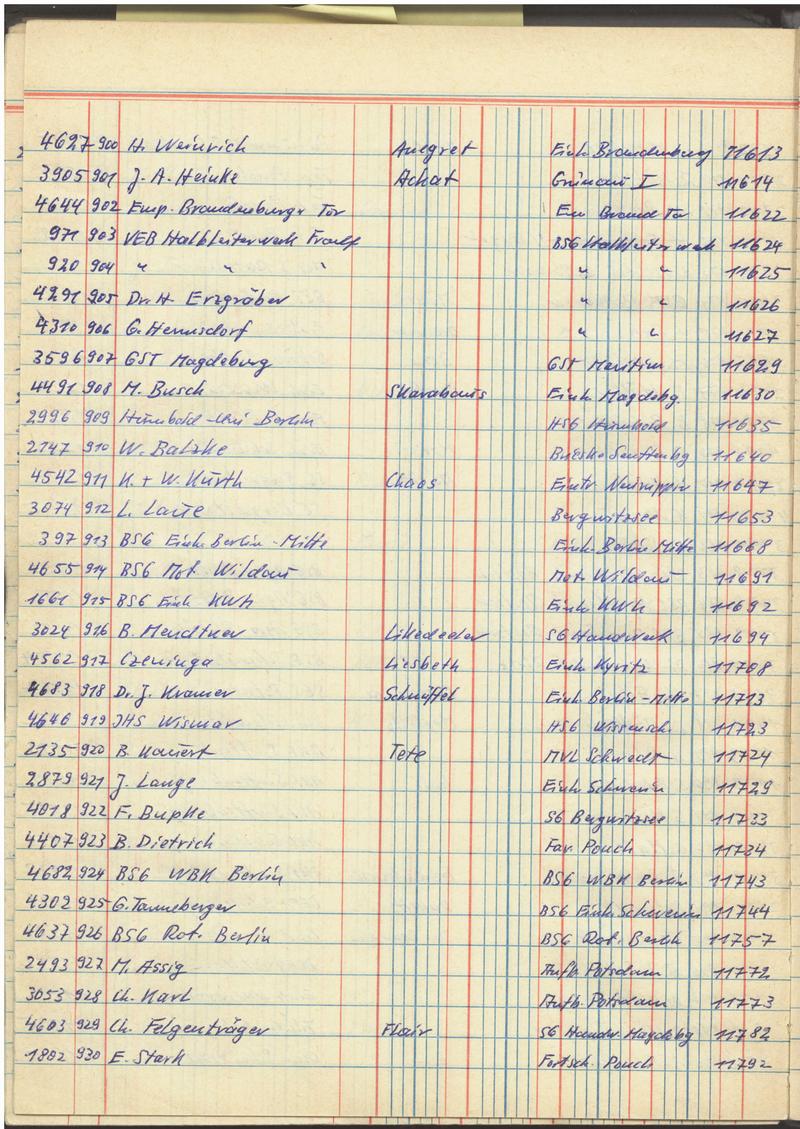 4627 900 H. Weinrich Annegret Einh. Brandenburg 11613
3905 901 J. A. Heinke Achat Grünau I 11614
4644 902 Emp. Brandenburger Tor Em Brand Tor 11622
971 903 VEB Halbleiterwerk Frankf BSG Halbleiterwerk 11624
920 904 " " " " " 11625
4291 905 Dr. H. Erzgräber " " 11626
4310 906 G. Hennsdorf " " 11627
3596 907 GST Magdeburg GST Maritim 11629
4491 908 M. Busch Skarabäus Einh. Magdebg. 11630
2996 909 Humbold-Uni Berlin HSG Humbold 11635
2147 910 W. Batzke Brieske-Senftenbg 11640
4542 911 K. + W. Kurth Chaos Eintr. Neuruppin 11647
3074 912 L. Bergwitzsee 11653
397 913 BSG Einh. Berlin-Mitte Einh. Berlin Mitte 11668
4655 914 BSG Mot. Wildau Mot. Wildau 11691
1661 915 BSG Einh. KWh Einh. KWh 11692
3024 916 B. Mendtner Likedeeler SG Handwerk 11694
4562 917 Czeninga Liesbeth Einh. Kyritz 11708
4683 918 Dr. J. Kramer Schnüffel Einh. Berlin-Mitte 11713
4646 919 JHS Wismar HSG Wissensch. 11723
2135 920 B. Tete MVL Schwedt 11724
2879 921 J. Lange Einh. Schwerin 11729
4018 922 F. Bupke SG Bergwitzsee 11733
4407 923 B. Dietrich Far. Pouch 11734
4682 924 BSG WBK Berlin BSG WBK Berlin 11743
4302 925 G. Tanneberger BSG Einh. Schwerin 11744
4637 926 BSG Rot. Berlin BSG Rot. Berlin 11757
2493 927 M. Assig Aufb. Potsdam 11772
3053 928 Ch. Karl Aufb. Potsdam 11773
4603 929 Ch. Felgenträger Flair SG Handw. Magdebg 11782
1802 930 E. Stark Fortsch. Pouch 11792